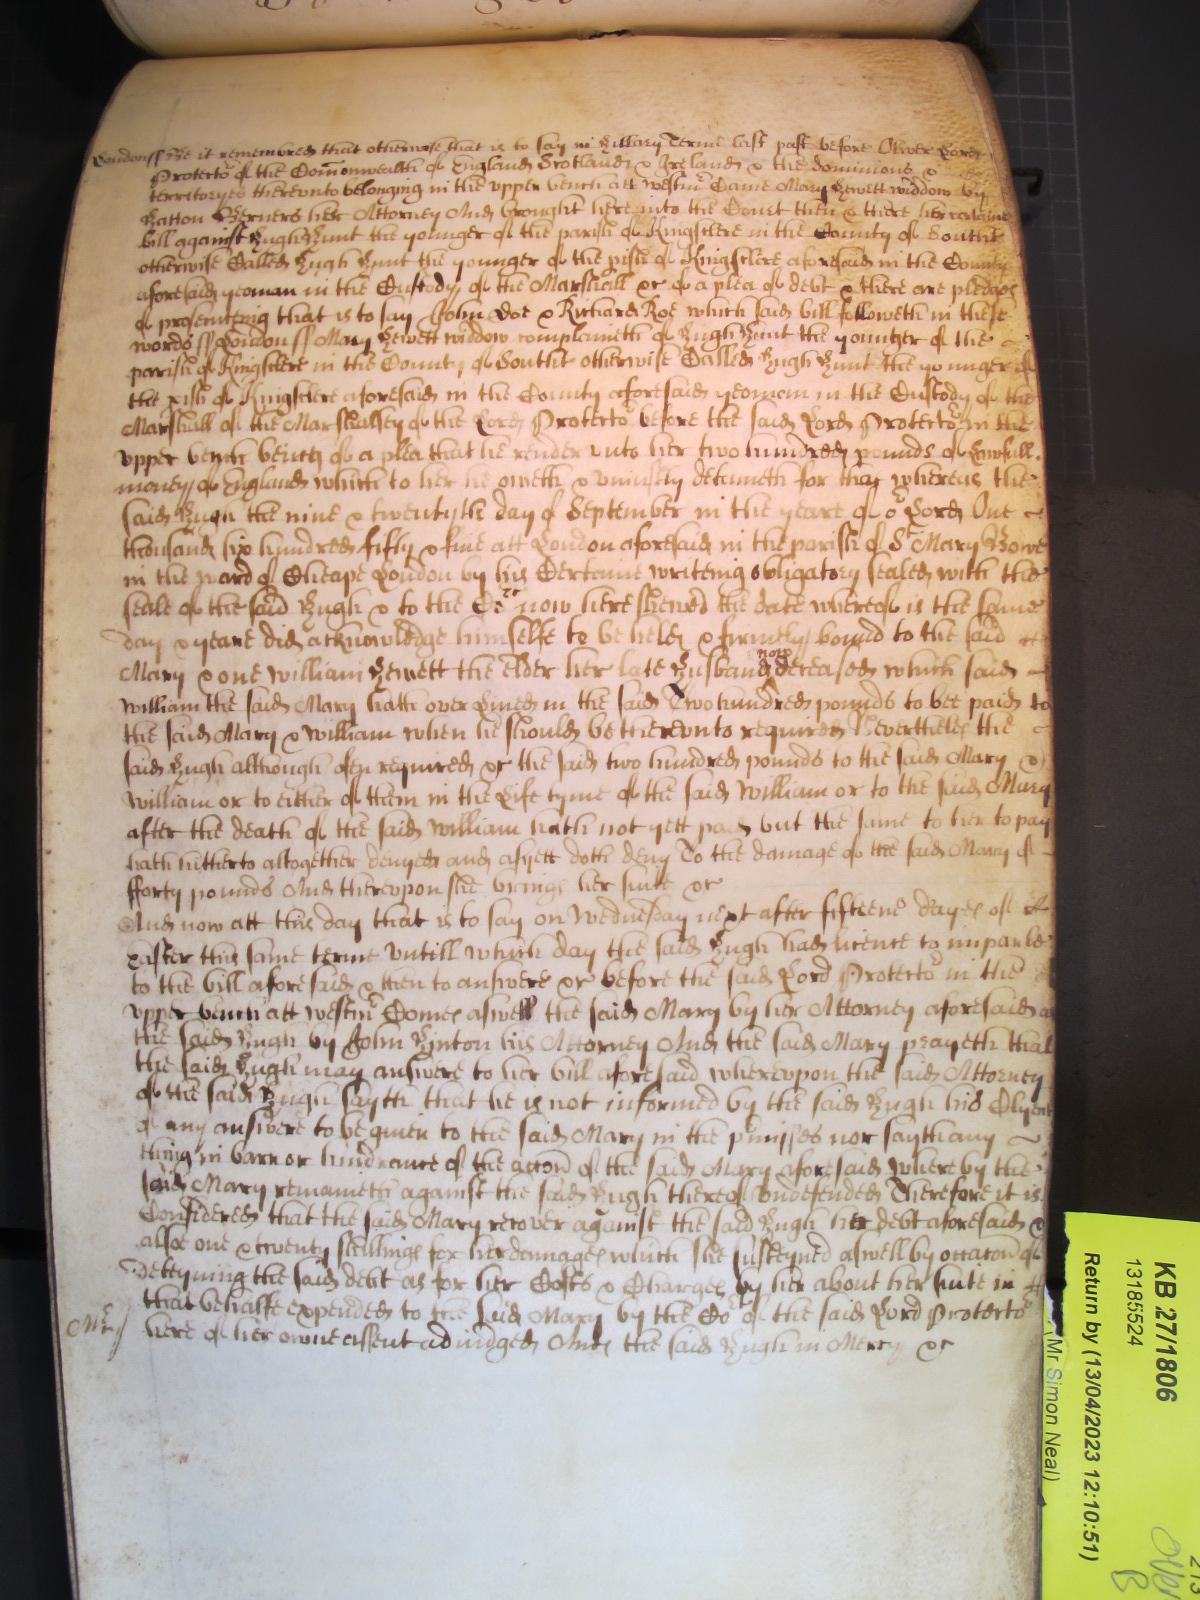 London ss Be it remembred that otherwise that is to say in Hillary Terme last past before Oliver Lord
Protector of the Comonwealth of England Scotland & Ireland & the dominions &
territoryes therevnto belonging in the vpper bench att Westmr Came Mary Hewett widdow by
Hatton Berners her Attorney And brought here into the Court then & there her certaine
bill against Hugh Hunt the younger of the parish of Kingsclere in the County of Southt
otherwise Called Hugh Hunt the younger of the pish of Kingsclere aforesaid in the County
aforesaid yeoman in the Custody of the Marshall &c of a plea of debt & there are pledges
of prosecuting that is to say John Doe & Richard Roe which said bill followeth in these
words ss London ss Mary Hewett widdow complaineth of Hugh Hunt the younger of the
parish of Kingsclere in the County of Southt otherwise Called Hugh Hunt the younger of
the pish of Kingsclere aforesaid in the County aforesaid yeoman in the Custody of the
Marshall of the Marshallsey of the Lord Protector before the said Lord Protector in the
vpper bench being of a plea that he render vnto her two hundred pounds of Lawfull
money of England which to her he oweth & vniustly detaineth for that whereas the
said Hugh the nine & twentyth day of September in the yeare of or Lord One
thousand six hundred fifty & fiue att London aforesaid in the parish of St Mary Bowe
in the ward of Cheape London by his Certaine writeing obligatory sealed with the
seale of the said Hugh & to the Cort now here shewed the date whereof is the same
day & yeare did acknowledge himselfe to be held & firmly bound to the said
Mary & one William Hewett the elder her late Husband now deceased which said
William the said Mary hath over lived in the said Two hundred pounds to bee paid to
the said Mary & William when he should be therevnto required Neverthelesse the
said Hugh although often required &c the said two hundred pounds to the said Mary &
William or to either of them in the Life tyme of the said William or to the said Mary
after the death of the said William hath not yett paid but the same to her to pay
hath hitherto altogether denyed and as yett doth deny To the damage of the said Mary of
fforty pounds And therevpon she brings her suite &c
And now att this day that is to say on Wednesday next after fifteene dayes of
Easter this same terme Untill which day the said Hugh had licence to imparle
to the bill aforesaid & then to answere &c before the said Lord Protector in the
vpper bench att Westmr Comes aswell the said Mary by her Attorney aforesaid as
the said Hugh by John Hinton his Attorney And the said Mary prayeth that
the said Hugh may answere to her bill aforesaid wherevpon the said Attorney
of the said Hugh sayth that he is not informed by the said Hugh his Clyent
of any answere to be giuen to the said Mary in the pmisses nor sayth any
thing in barr or hindrance of the accon of the said Mary aforesaid whereby the
said Mary remaineth against the said Hugh thereof Undefended Therefore it is
Considered that the said Mary recover against the said Hugh her debt aforesaid &
alsoe one & twenty shillings for her damages which she susteyned aswell by occacon of
Deteyning the said debt as for her Costs & Charges by her about her suite in
that behalfe expended to the said Mary by the Cort of the said Lord Protector
here of her owne assent adiudged And the said Hugh in Mercy &c
KB 27/1806
13185524
Return by (13/04/2023 12:10:51)
(Mr Simon Neal)